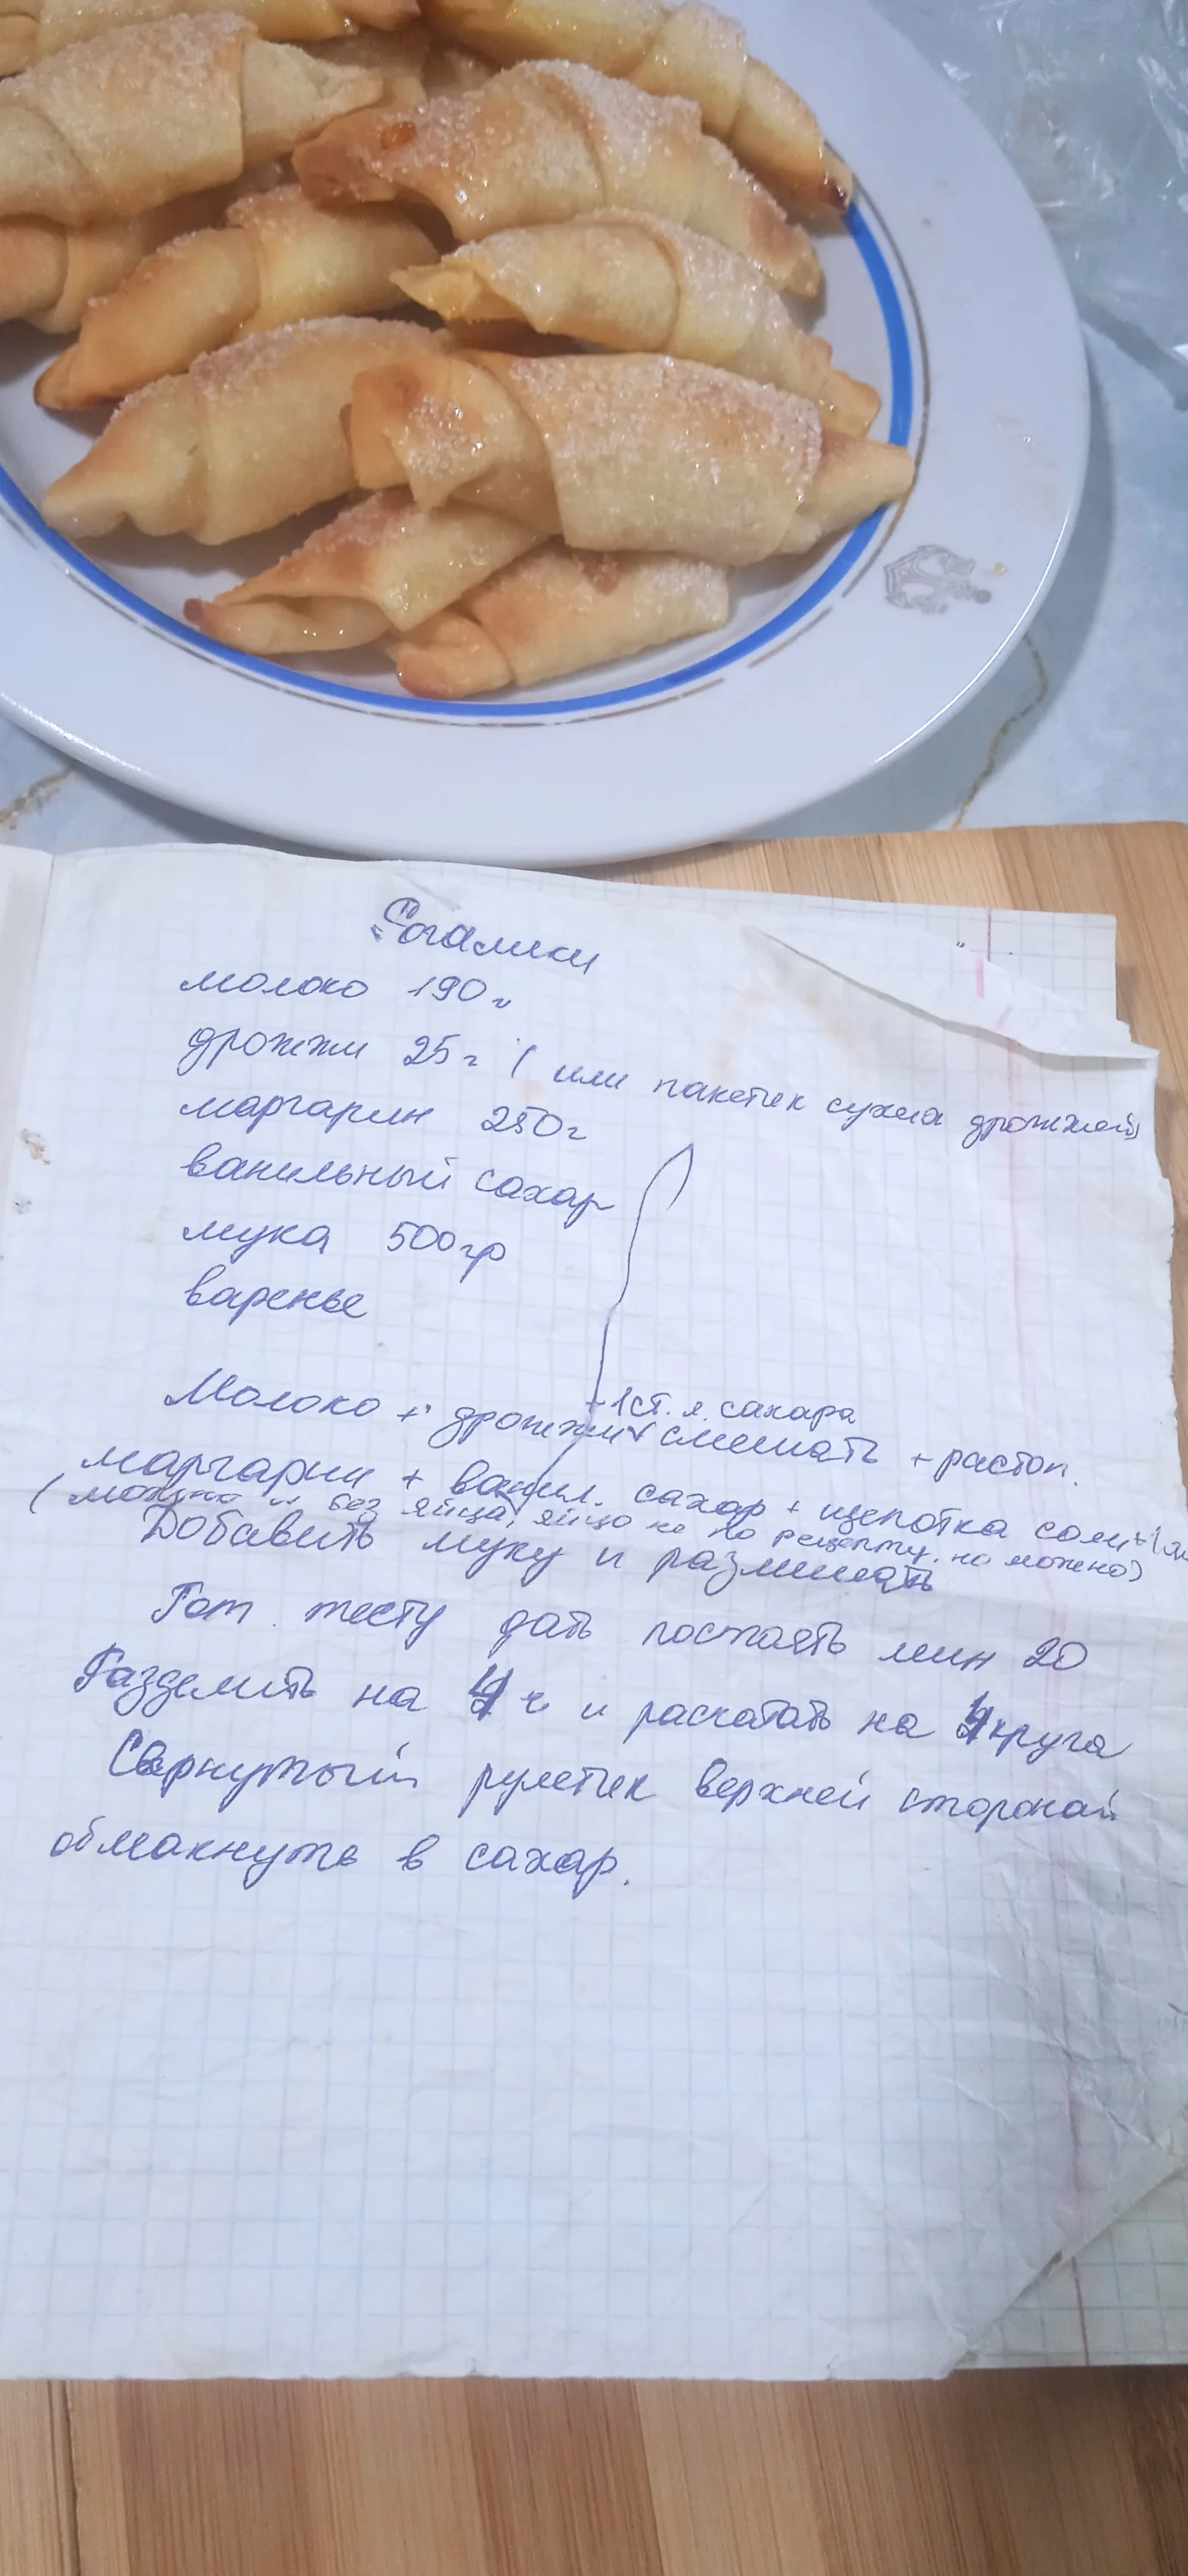 Рогалики
молоко 190г
дрожжи 25г (или пакетик сухих дрожжей)
маргарин 250г
ванильный сахар
мука 500гр
варенье
+1ст. л. сахара
Молоко + дрожжи смешать + растоп.
маргарин + ванил. сахар + щепотка соли +1
(можно и без яйца, яйцо не по рецепту, но можно)
Добавить муку и размешать
Гот. тесту дать постоять мин 20
Разделить на 4 ч и раскатать на 4 круга
Свернутый рулетик верхней стороной
обмакнуть в сахар.